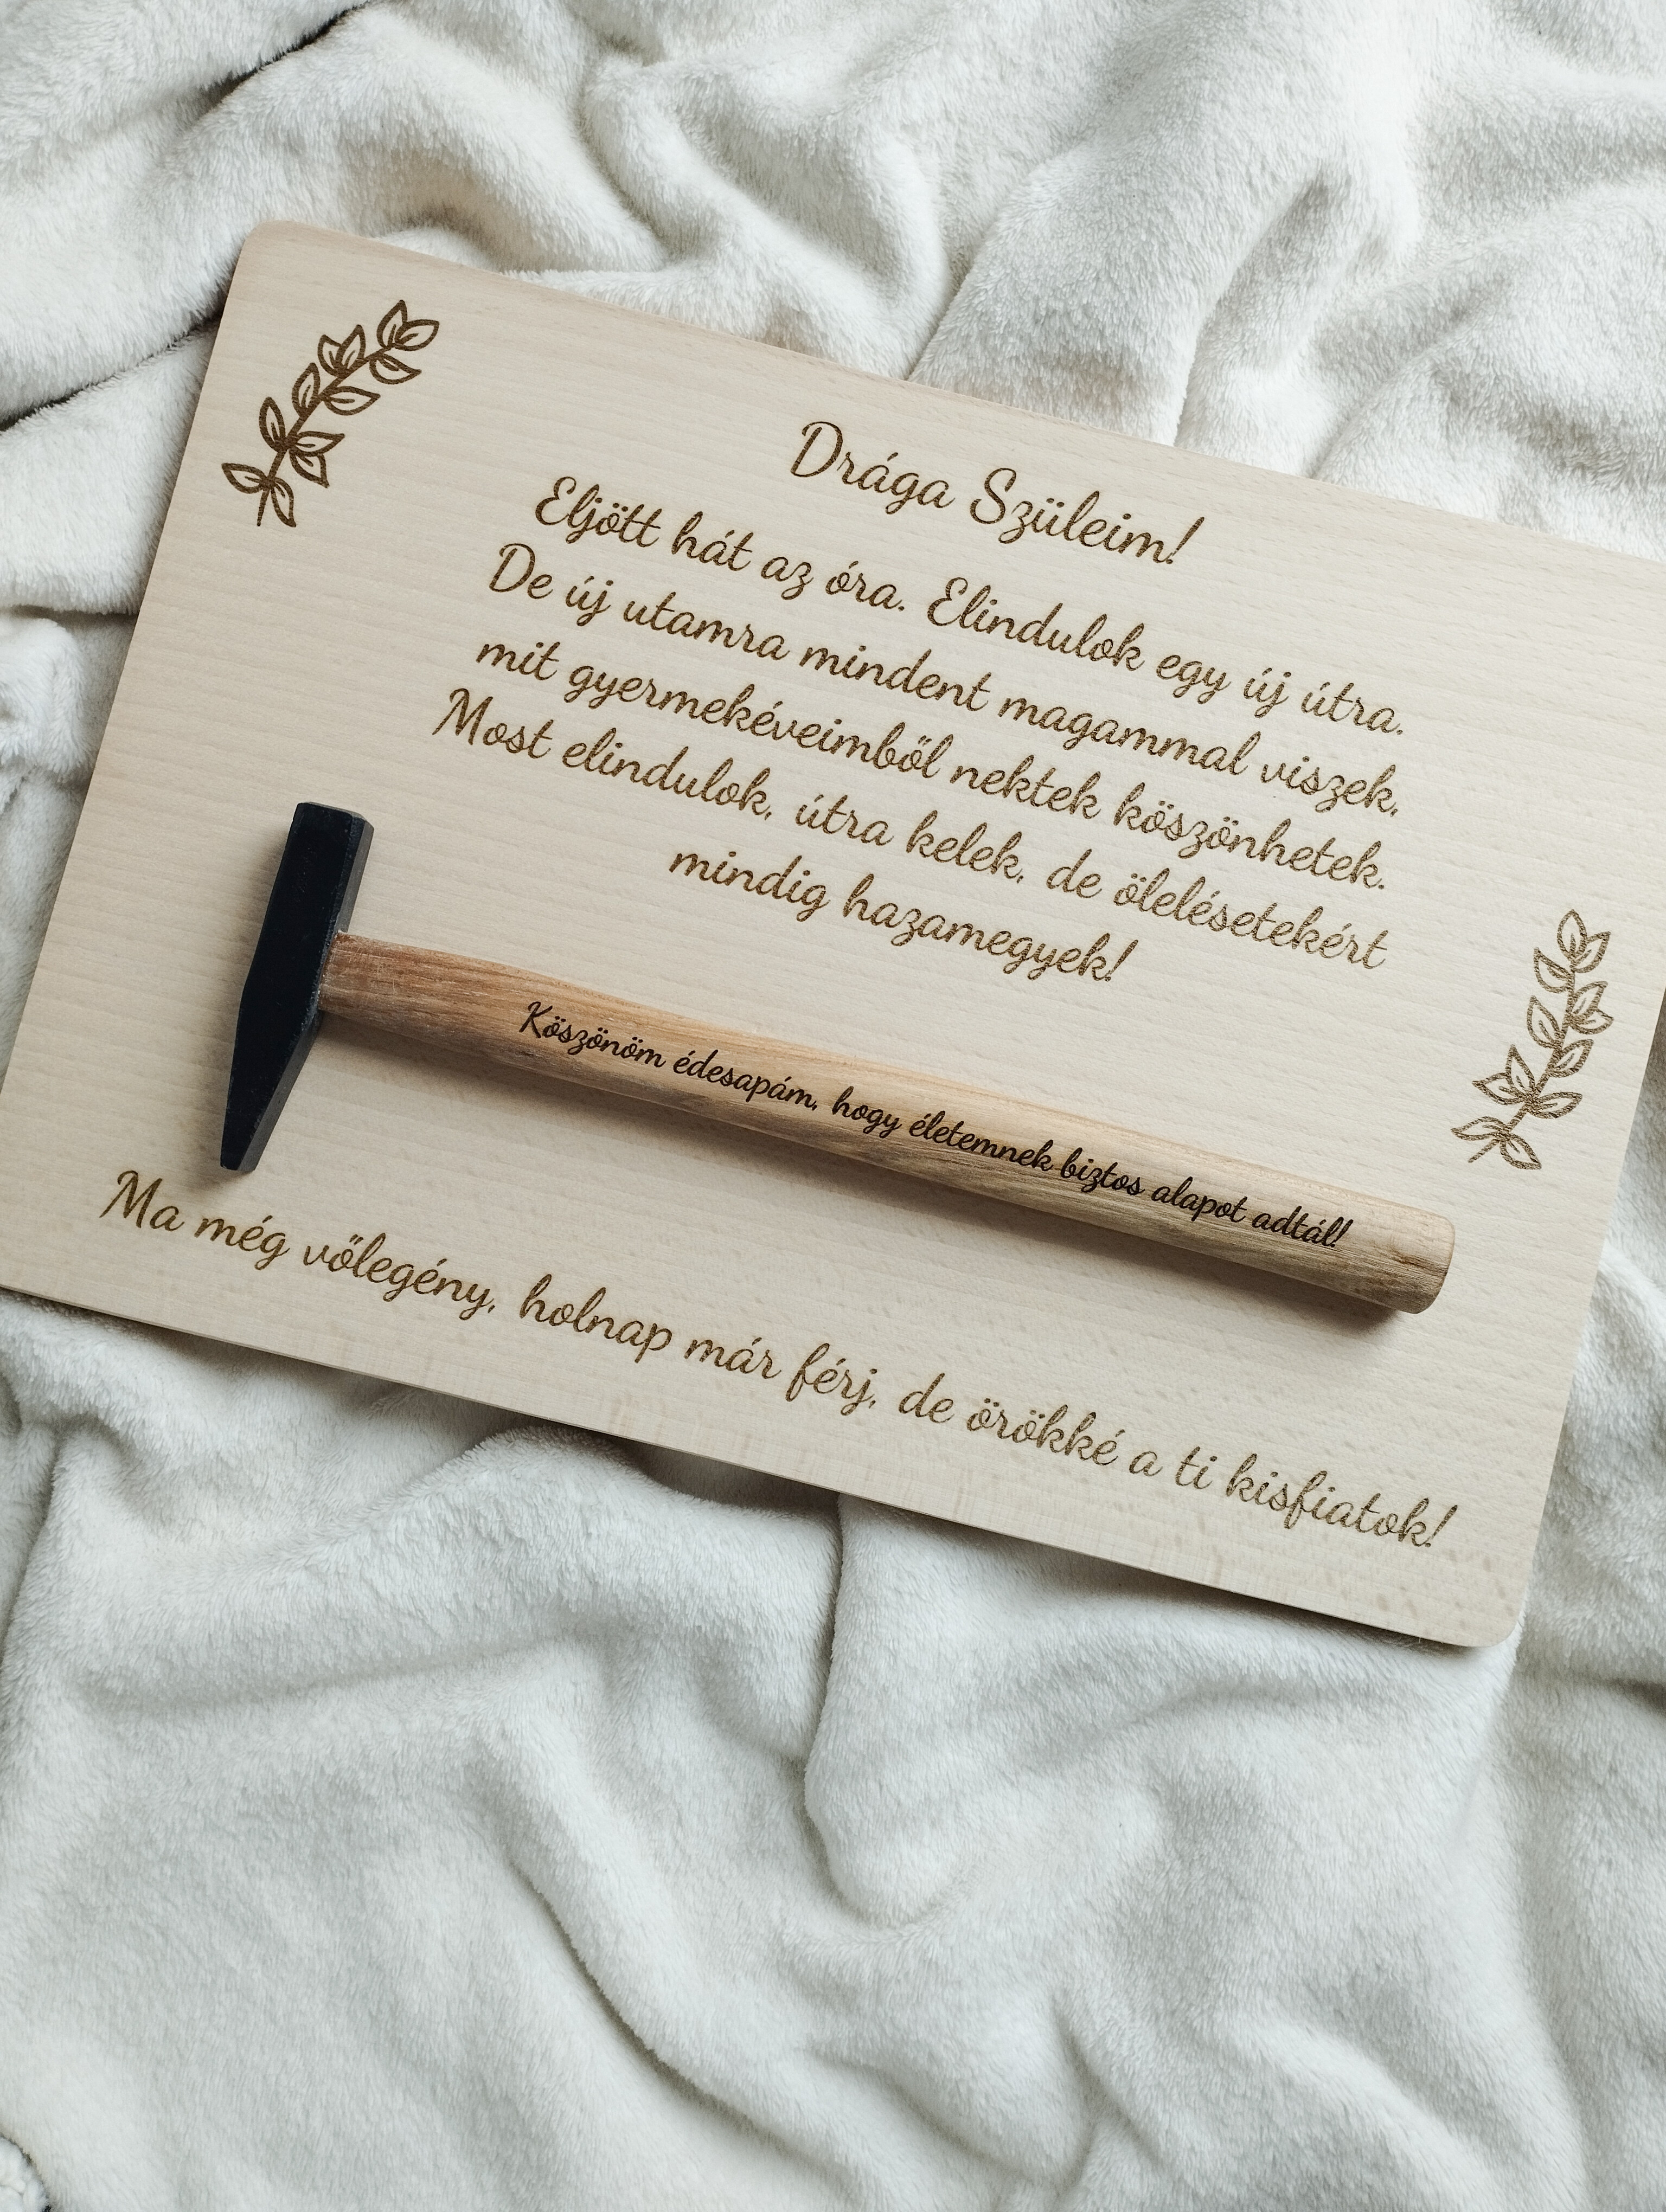 Drága Szüleim!
Eljött hát az óra. Elindulok egy új útra.
De új utamra mindent magammal viszek,
mit gyermekéveimből nektek köszönhetek.
Most elindulok, útra kelek, de ölelésetekért
mindig hazamegyek!
Köszönöm édesapám, hogy életemnek biztos alapot adtál!
Ma még vőlegény, holnap már férj, de örökké a ti kisfiatok!